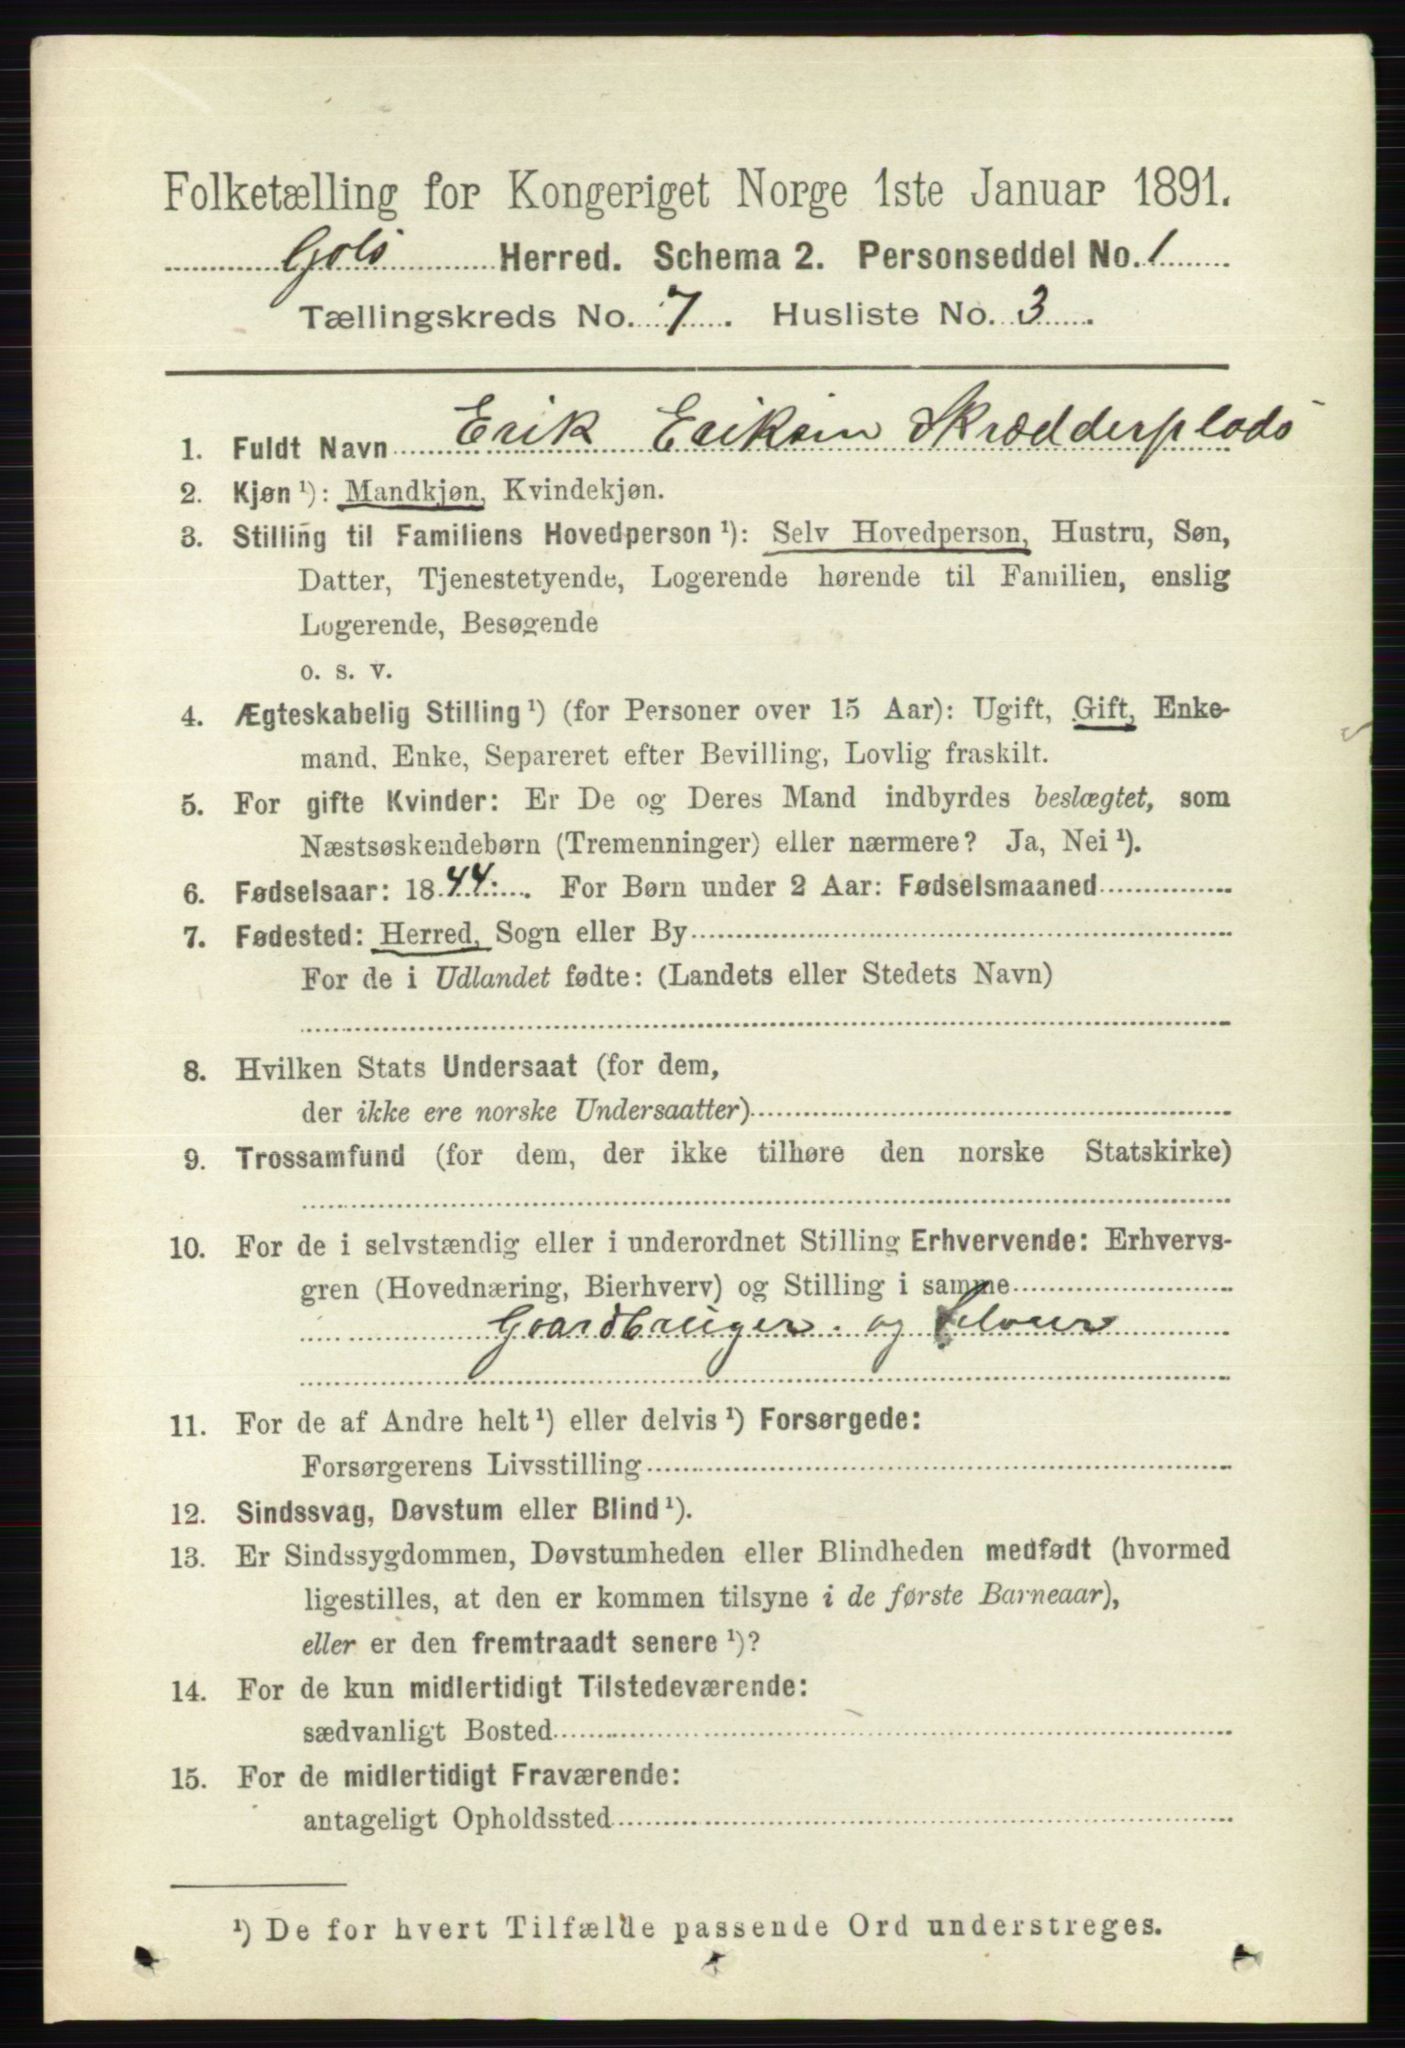 Folketælling for Kongeriget Norge 1ste Januar 1891.
Gols Herred. Schema 2. Personseddel No. 1
Tællingskreds No. 7. Husliste No. 3.
1. Fuldt Navn Erik Eriksen Skrædderplads
2. Kjøn ¹): Mandkjøn, Kvindekjøn.
3. Stilling til Familiens Hovedperson ¹): Selv Hovedperson, Hustru, Søn,
Datter, Tjenestetyende, Logerende hørende til Familien, enslig
Logerende, Besøgende
o. s. v.
4. Ægteskabelig Stilling ¹) (for Personer over 15 Aar): Ugift, Gift, Enke-
mand, Enke, Separeret efter Bevilling, Lovlig fraskilt.
5. For gifte Kvinder: Er De og Deres Mand indbyrdes beslægtet, som
Næstsøskendebørn (Tremenninger) eller nærmere? Ja, Nei ¹).
6. Fødselsaar: 1844. For Børn under 2 Aar: Fødselsmaaned
7. Fødested: Herred, Sogn eller By
For de i Udlandet fødte: (Landets eller Stedets Navn)
8. Hvilken Stats Undersaat (for dem,
der ikke ere norske Undersaatter)
9. Trossamfund (for dem, der ikke tilhøre den norske Statskirke)
10. For de i selvstændig eller i underordnet Stilling Erhvervende: Erhvervs-
gren (Hovednæring, Bierhverv) og Stilling i samme
Gaardbruger og Selveier
11. For de af Andre helt ¹) eller delvis ¹) Forsørgede:
Forsørgerens Livsstilling
12. Sindssvag, Døvstum eller Blind ¹).
13. Er Sindssygdommen, Døvstumheden eller Blindheden medfødt (hvormed
ligestilles, at den er kommen tilsyne i de første Barneaar),
eller er den fremtraadt senere ¹)?
14. For de kun midlertidigt Tilstedeværende:
sædvanligt Bosted
15. For de midlertidigt Fraværende:
antageligt Opholdssted
¹) De for hvert Tilfælde passende Ord understreges.